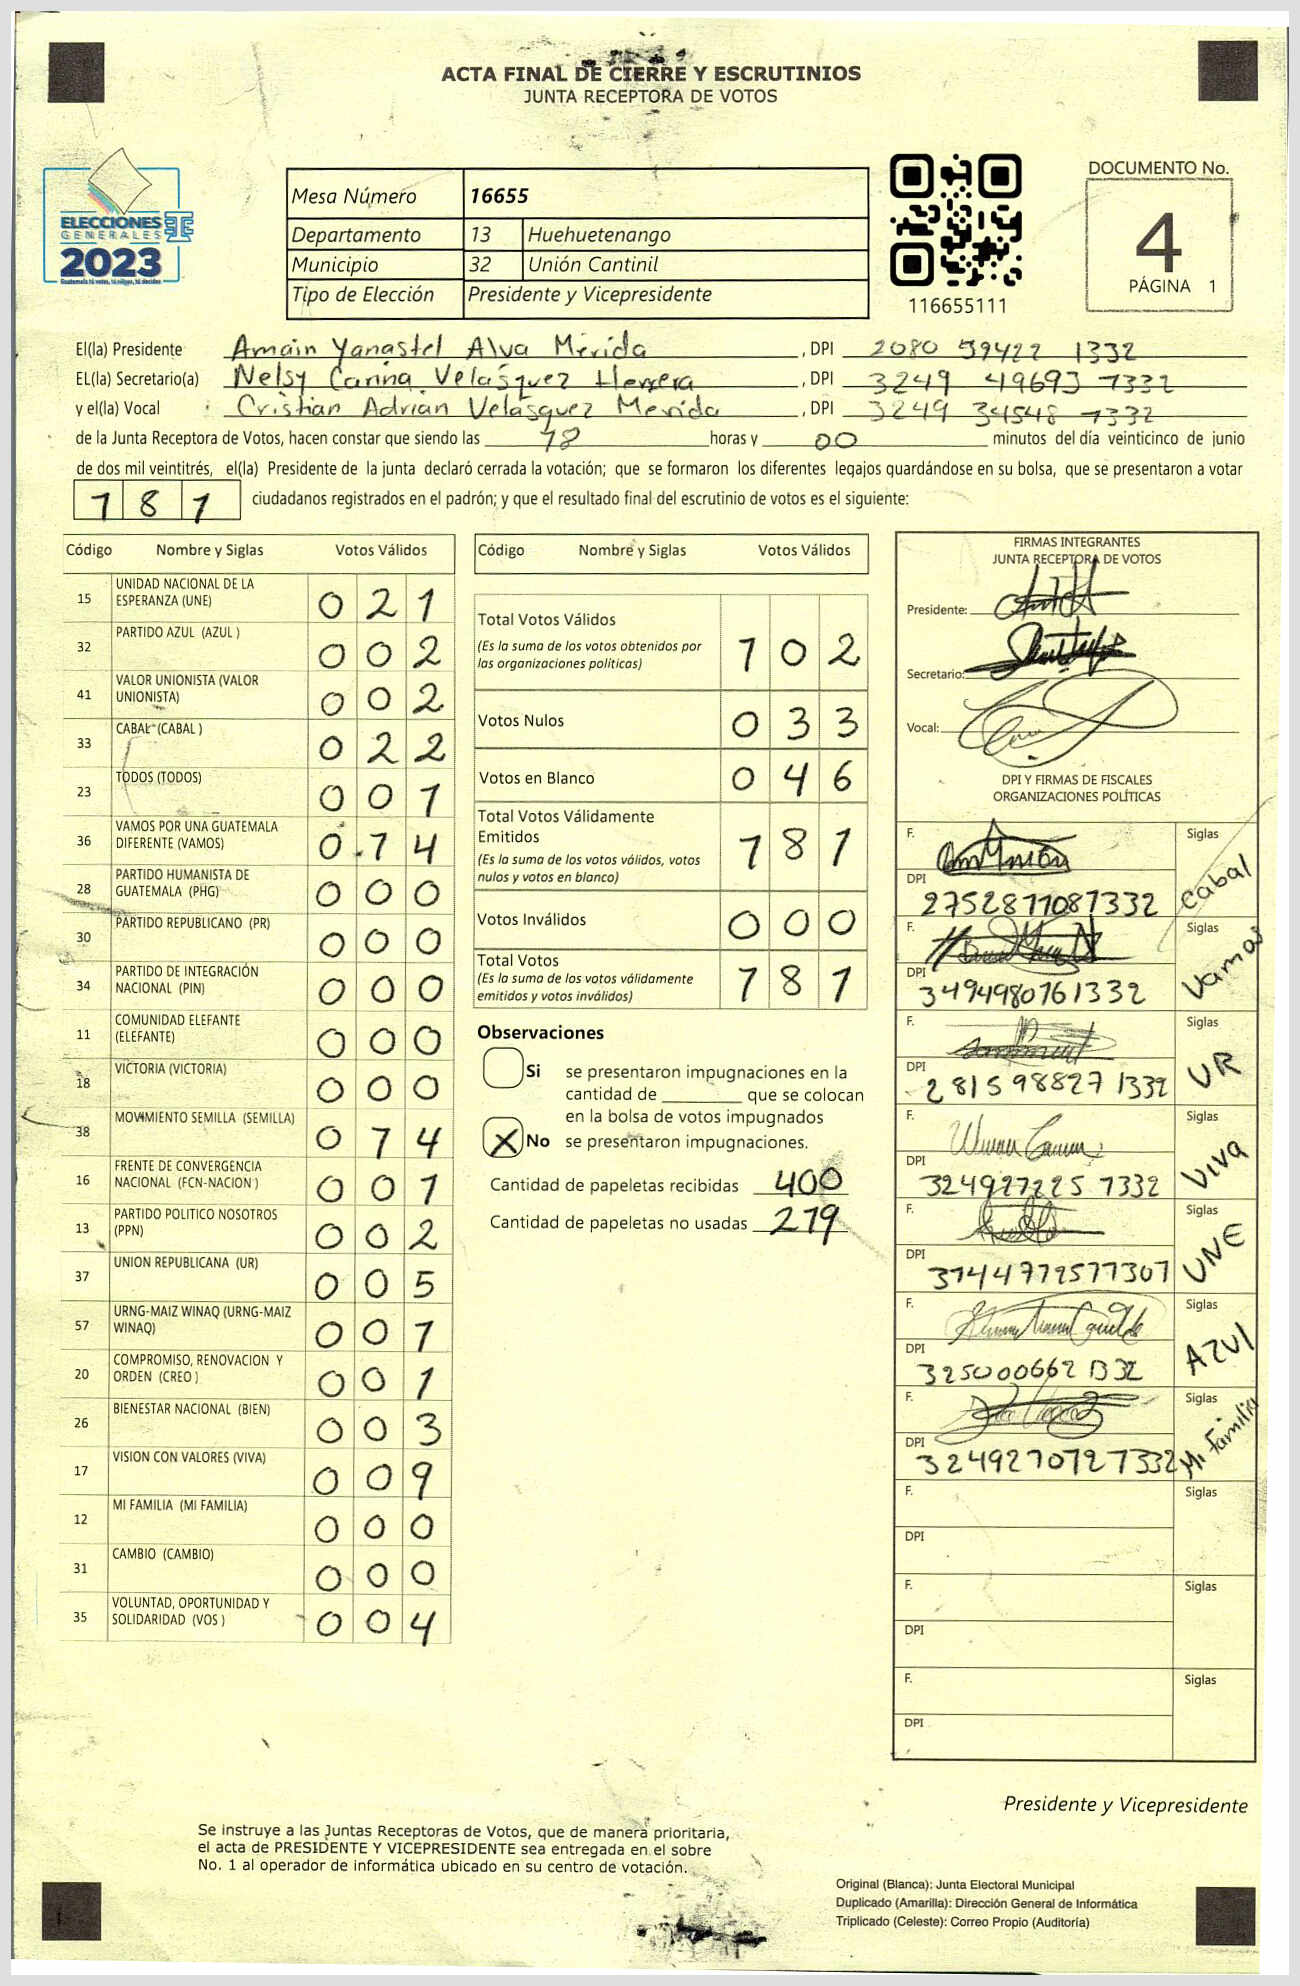 ACTA FINAL DE CIERRE Y ESCRUTINIOS
JUNTA RECEPTORA DE VOTOS
ELECCIONES
GENERALES
2023
Guatemala tú votas, tú eliges, tú decides
TSE
Mesa Número 16655
Departamento 13 Huehuetenango
Municipio 32 Unión Cantinil
Tipo de Elección Presidente y Vicepresidente
116655111
DOCUMENTO No.
4
PÁGINA 1
El(la) Presidente Amain Yanastel Alva Mérida , DPI 2080 59422 1332
EL(la) Secretario(a) Nelsy Carina Velásquez Herrera , DPI 3249 49693 1332
y el(la) Vocal Cristian Adrián Velásquez Merida , DPI 3249 34548 1332
de la Junta Receptora de Votos, hacen constar que siendo las 18 horas y 00 minutos del día veinticinco de junio
de dos mil veintitrés, el(la) Presidente de la junta declaró cerrada la votación; que se formaron los diferentes legajos guardándose en su bolsa, que se presentaron a votar
181 ciudadanos registrados en el padrón; y que el resultado final del escrutinio de votos es el siguiente:
Código Nombre y Siglas Votos Válidos
15 UNIDAD NACIONAL DE LA
ESPERANZA (UNE) 021
32 PARTIDO AZUL (AZUL ) 002
41 VALOR UNIONISTA (VALOR
UNIONISTA) 002
33 CABAL (CABAL ) 022
23 TODOS (TODOS) 001
36 VAMOS POR UNA GUATEMALA
DIFERENTE (VAMOS) 014
28 PARTIDO HUMANISTA DE
GUATEMALA (PHG) 000
30 PARTIDO REPUBLICANO (PR) 000
34 PARTIDO DE INTEGRACIÓN
NACIONAL (PIN) 000
11 COMUNIDAD ELEFANTE
(ELEFANTE) 000
18 VICTORIA (VICTORIA) 000
38 MOVIMIENTO SEMILLA (SEMILLA) 014
16 FRENTE DE CONVERGENCIA
NACIONAL (FCN-NACION ) 001
13 PARTIDO POLITICO NOSOTROS
(PPN) 002
37 UNION REPUBLICANA (UR) 005
57 URNG-MAIZ WINAQ (URNG-MAIZ
WINAQ) 001
20 COMPROMISO, RENOVACION Y
ORDEN (CREO ) 001
26 BIENESTAR NACIONAL (BIEN) 003
17 VISION CON VALORES (VIVA) 009
12 MI FAMILIA (MI FAMILIA) 000
31 CAMBIO (CAMBIO) 000
35 VOLUNTAD, OPORTUNIDAD Y
SOLIDARIDAD (VOS ) 004
Código Nombre y Siglas Votos Válidos
Total Votos Válidos
(Es la suma de los votos obtenidos por
las organizaciones políticas) 102
Votos Nulos 033
Votos en Blanco 046
Total Votos Válidamente
Emitidos
(Es la suma de los votos válidos, votos
nulos y votos en blanco) 181
Votos Inválidos 000
Total Votos
(Es la suma de los votos válidamente
emitidos y votos inválidos) 181
Observaciones
Si se presentaron impugnaciones en la
cantidad de que se colocan
en la bolsa de votos impugnados
X No se presentaron impugnaciones.
Cantidad de papeletas recibidas 400
Cantidad de papeletas no usadas 219
FIRMAS INTEGRANTES
JUNTA RECEPTORA DE VOTOS
Presidente:
Secretario:
Vocal:
DPI Y FIRMAS DE FISCALES
ORGANIZACIONES POLÍTICAS
F. Siglas Cabal
DPI 2752811081332
F. Siglas Vamos
DPI 3494980761332
F. Siglas UR
DPI 2815 98827 1332
F. Siglas Viva
DPI 324927225 1332
F. Siglas UNE
DPI
F. Siglas AZUL
DPI 325000662 1332
F. Siglas Mi Familia
DPI 3249270721332
F. Siglas
DPI
F. Siglas
DPI
F. Siglas
DPI
Presidente y Vicepresidente
Se instruye a las Juntas Receptoras de Votos, que de manera prioritaria,
el acta de PRESIDENTE Y VICEPRESIDENTE sea entregada en el sobre
No. 1 al operador de informática ubicado en su centro de votación.
Original (Blanca): Junta Electoral Municipal
Duplicado (Amarilla): Dirección General de Informática
Triplicado (Celeste): Correo Propio (Auditoría)